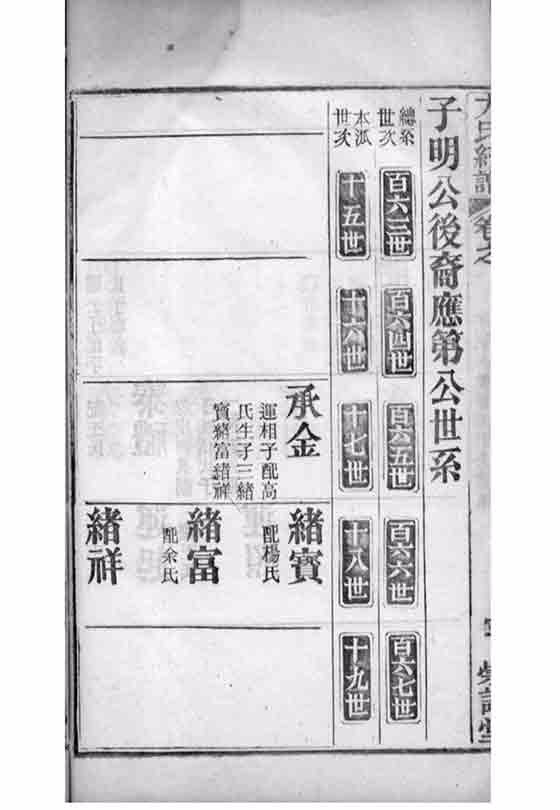 子明公後裔應第公世系
總系世次
百六三世
百六四世
百六五世
百六六世
百六七世
本派世次
十五世
十六世
十七世
十八世
十九世
承金
運相子配高
氏生子三緒
寶緒富緒祥
緒寶
配楊氏
緒富
配余氏
緒祥